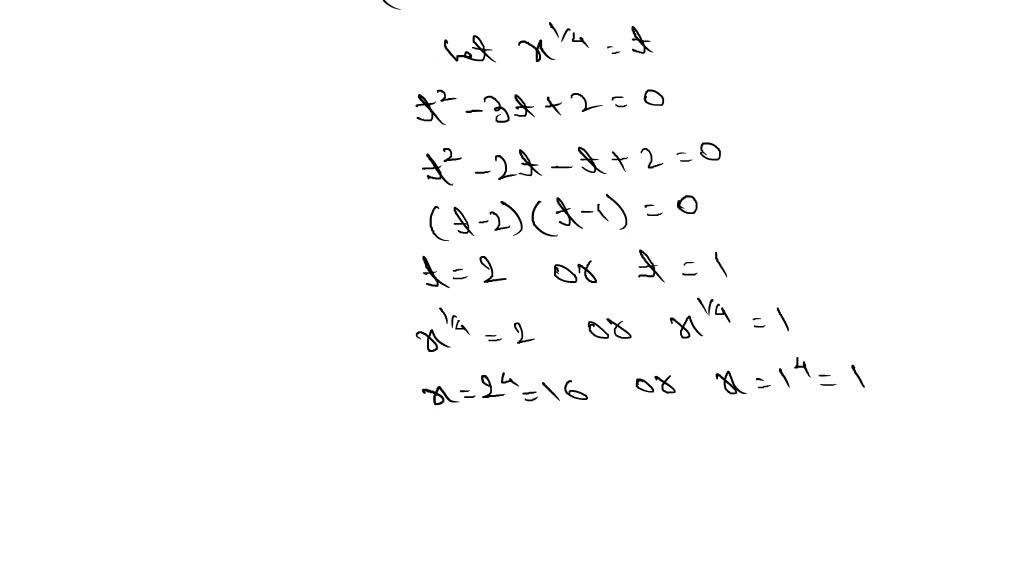 Let x^{1/4} = t
t² - 3t + 2 = 0
t² - 2t - t + 2 = 0
(t-2)(t-1) = 0
t = 2 or t = 1
x^{1/4} = 2 or x^{1/4} = 1
x = 2⁴ = 16 or x = 1⁴ = 1